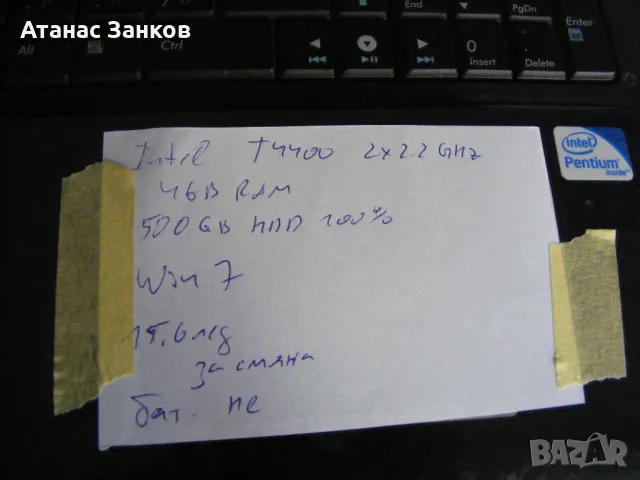 Атанас Занков
End
PgDn
Enter
Alt
Ctrl
0
Insert
.
Delete
intel
Pentium
inside
Intel T4400 2x2.2 GHz
4GB RAM
500GB HDD 100%
Win 7
15,6 лед
за смяна
бат. не
BAZAR